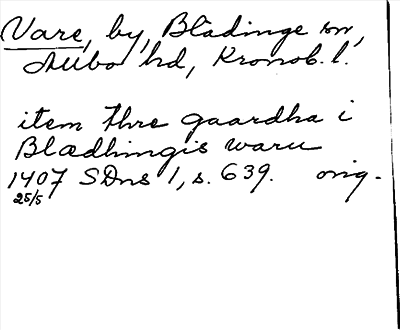 Vare, by, Blädinge sn,
Allbo hd, Kronob. l.
item thre gaardha i
Blædhingis waru
1407 SDns 1, s. 639. orig.
25/5